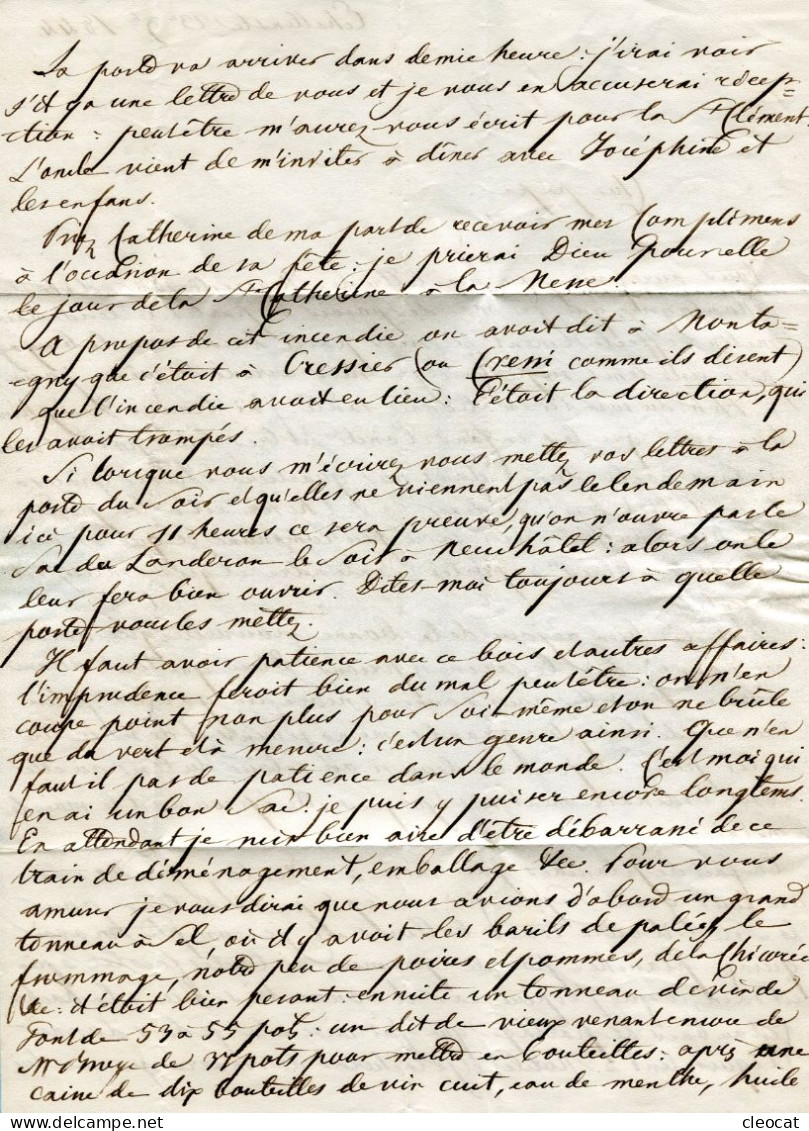 La poste va arriver dans demie heure : j'irai voir
s'il y a une lettre de vous et je vous en accuserai récep=
ction : peutêtre m'aurez vous écrit pour la St Clément.
L'oncle vient de m'inviter à dîner avec Joséphine et
les enfans.
Priez Catherine de ma part de recevoir mes Complimens
à l'occasion de sa fête : je prierai Dieu pour elle
le jour de la Ste Catherine à la Messe.
A propos de cet incendie on avoit dit à Monta=
=gny que c'étoit à Cressier (ou Cressi comme ils disent)
que l'incendie avoit eu lieu : C'étoit la direction, qui
les avoit trompés.
Si lorsque vous m'écrirez vous mettez vos lettres à la
poste du Soir et qu'elles ne viennent pas le lendemain
ici pour 11 heures ce sera preuve, qu'on n'ouvre pas le
Sac du Landeron le Soir à Neuchâtel : alors on le
leur fera bien ouvrir. Dites-moi toujours à quelle
poste vous les mettez.
Il faut avoir patience avec ce bois et autres affaires :
l'imprudence feroit bien du mal peutêtre : on n'en
coupe point non plus pour Soi-même et on ne brûle
que du vert et à mesure : c'est un genre ainsi. Que n'en
faut il pas de patience dans le monde. C'est moi qui
en ai un bon Sac : je puis y puiser encore longtems.
En attendant je suis bien aise d'être débarrassé de ce
train de déménagement, emballage &c. Pour vous
amuser je vous dirai que nous avions d'abord un grand
tonneau à Sel, où il y avoit les barils de palées, le
frommage, notre peu de poires et pommes, de la Chicorée
&c : il étoit bien pesant : ensuite un tonneau de vin de
Font de 53 à 55 pots : un dit de vieux venant encore de
Mr de 37 pots pour mettre en bouteilles : après une
caisse de dix bouteilles de vin cuit, eau de menthe, huile
cleocat